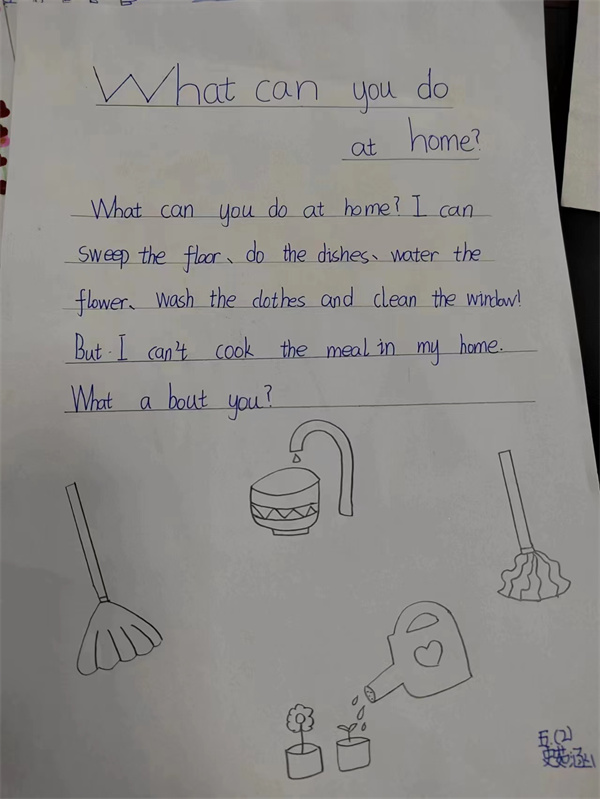 What can you do
at home?
What can you do at home? I can
sweep the floor、do the dishes、water the
flower、wash the clothes and clean the window!
But I can't cook the meal in my home.
What a bout you?
五.(2)